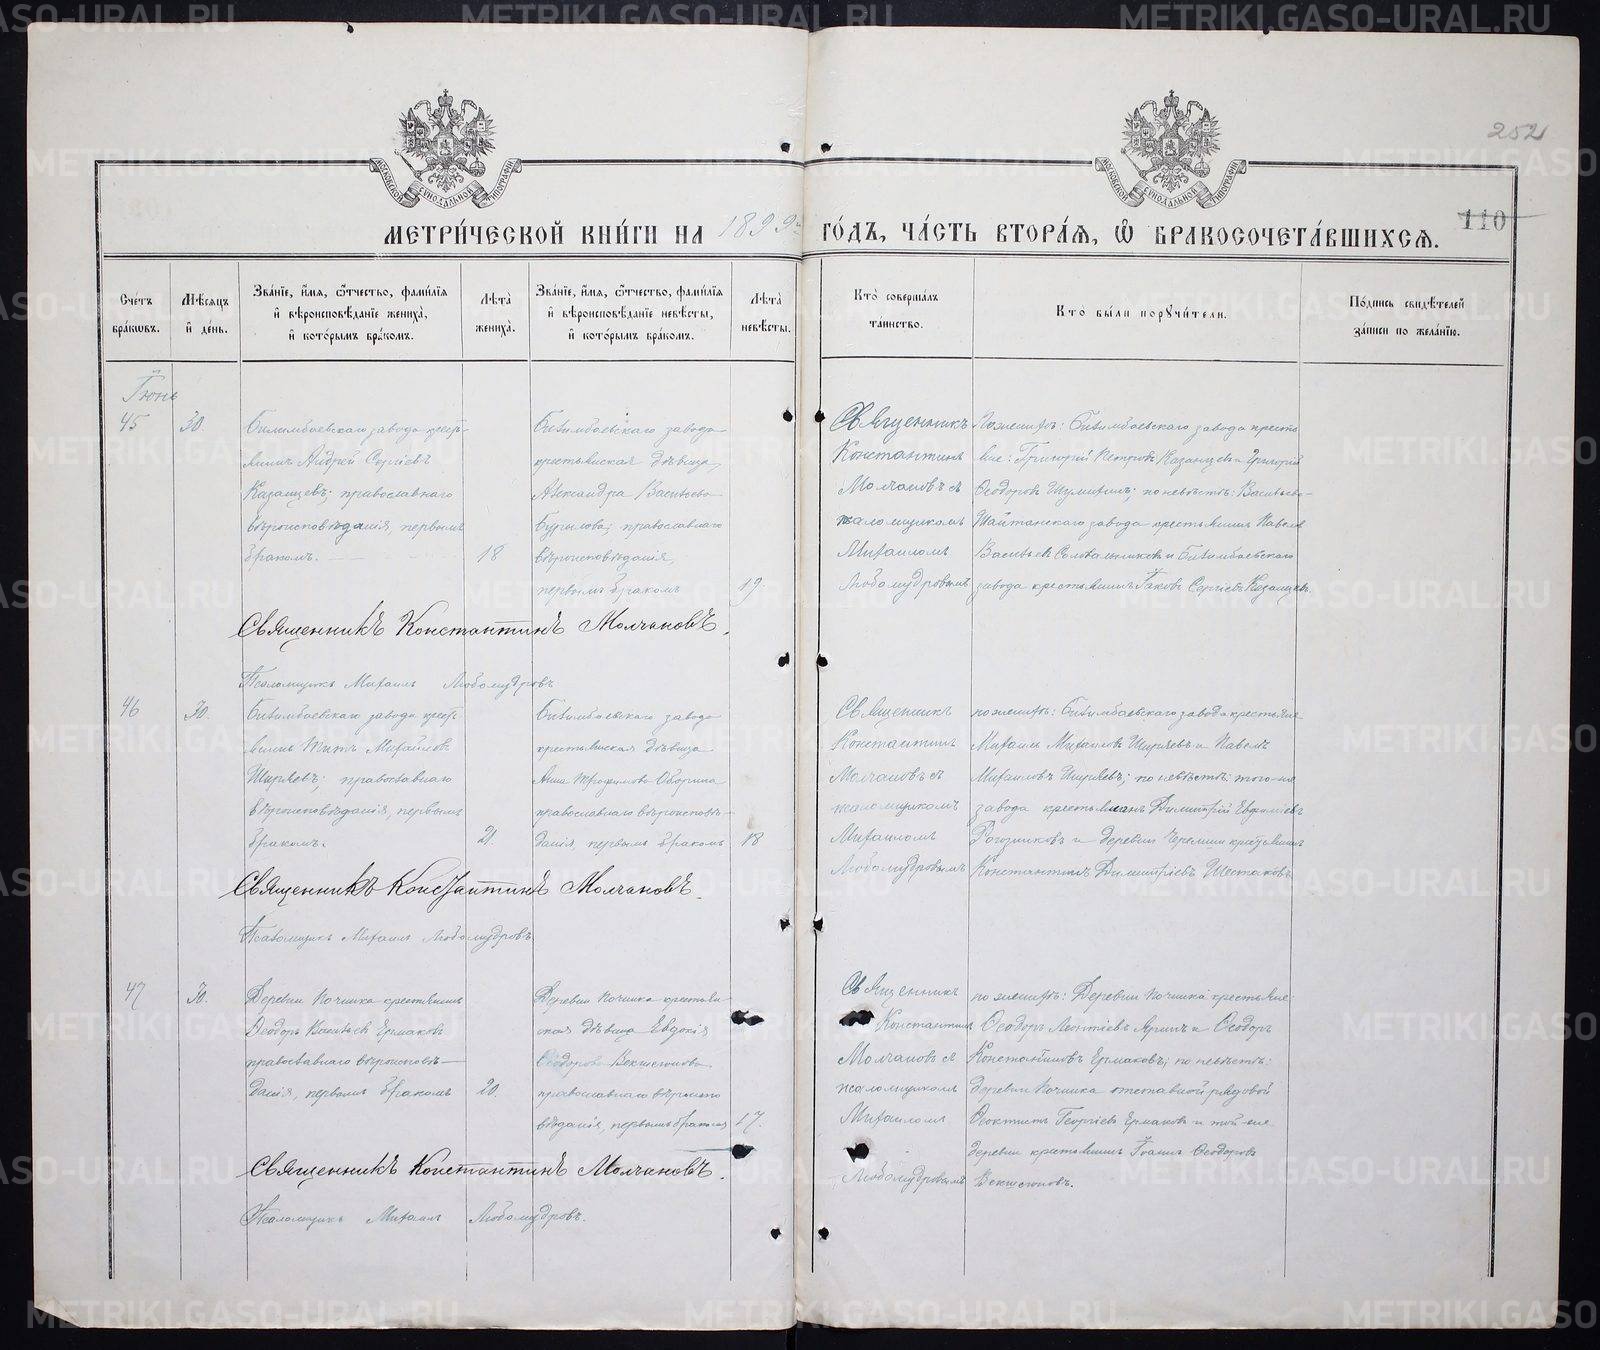 252
110
МЕТРИ́ЧЕСКОЙ КНИ́ГИ НА 1899й ГО́ДЪ, ЧА́СТЬ ВТОРА́Я, Ѡ БРАКОСОЧЕТА́ВШИХСЯ.
МОСКОВСКОЙ СѴНОДАЛЬНОЙ ТИПОГРАФІИ
МОСКОВСКОЙ СѴНОДАЛЬНОЙ ТИПОГРАФІИ
Сче́тъ бра́кωвъ.
Мѣ́сяцъ и҆ де́нь.
Зва́нїе, и҆́мя, ѻ҆́тчество, фами́лїя
и҆ вѣроисповѣ́данїе жениха̀,
и҆ кото́рымъ бра́комъ.
Лѣта̀ жениха̀.
Зва́нїе, и҆́мя, ѻ҆́тчество, фами́лїя
и҆ вѣроисповѣ́данїе невѣ́сты,
и҆ кото́рымъ бра́комъ.
Лѣта̀ невѣ́сты.
Кто̀ соверша́лъ та́инство.
Кто̀ бы́ли порꙋчи́тели.
По́дпись свидѣ́телей за́писи по жела́нїю.
Іюнь
45
30
Билимбаевскаго завода кресть-
янинъ Андрей Сергіевъ
Казанцевъ; православнаго
вѣроисповѣданія, первымъ
бракомъ.
18
Билимбаевскаго завода
крестьянская дѣвица
Александра Васильева
Бурылова; православнаго
вѣроисповѣданія,
первымъ бракомъ
19.
Священникъ
Константинъ
Молчановъ съ
псаломщикомъ
Михаиломъ
Любомудровымъ
По женихѣ: Билимбаевскаго завода кресть
яне: Григорій Петровъ Казанцевъ и Григорій
Ѳеодоровъ Шумилинъ; по невѣстѣ: Васильево-
Шайтанскаго завода крестьянинъ Павелъ
Васильевъ Солодянниковъ и Билимбаевскаго
завода крестьянинъ Іаковъ Сергіевъ Казанцевъ.
Священникъ Константинъ Молчановъ.
Псаломщикъ Михаилъ Любомудровъ
46
30.
Билимбаевскаго завода кресть
янинъ Титъ Михайловъ
Ширяевъ; православнаго
вѣроисповѣданія, первымъ
бракомъ.
21.
Билимбаевскаго завода
крестьянская дѣвица
Анна Трофимова Оборина
православнаго вѣроисповѣ-
данія, первымъ бракомъ
18
Священникъ
Константинъ
Молчановъ съ
псаломщикомъ
Михаиломъ
Любомудровымъ
по женихѣ: Билимбаевскаго завода крестьяне
Михаилъ Михаиловъ Ширяевъ и Павелъ
Михаиловъ Ширяевъ; по невѣстѣ: того-же
завода крестьянинъ Димитрій Евфиміевъ
Рогозниковъ и деревни Черемши крестьянинъ
Константинъ Димитріевъ Шестаковъ.
Священникъ Константинъ Молчановъ.
Псаломщикъ Михаилъ Любомудровъ
47
30.
Деревни Починка крестьянинъ
Ѳеодоръ Васильевъ Ермаковъ
православнаго вѣроисповѣ-
данія, первымъ бракомъ
20.
Деревни Починка крестьян
ская дѣвица Евдокія
Ѳеодорова Векшегонова
православнаго вѣроиспо
вѣданія, первымъ бракомъ
17.
Священникъ
Константинъ
Молчановъ съ
псаломщикомъ
Михаиломъ
Любомудровымъ
по женихѣ: Деревни Починка крестьяне:
Ѳеодоръ Леонтіевъ Яринъ и Ѳеодоръ
Константиновъ Ермаковъ; по невѣстѣ:
деревни Починка отставной рядовой
Ѳеоктистъ Георгіевъ Ермаковъ и той-же
деревни крестьянинъ Іоаннъ Ѳеодоровъ
Векшегоновъ.
Священникъ Константинъ Молчановъ.
Псаломщикъ Михаилъ Любомудровъ.
METRIKI.GASO-URAL.RU